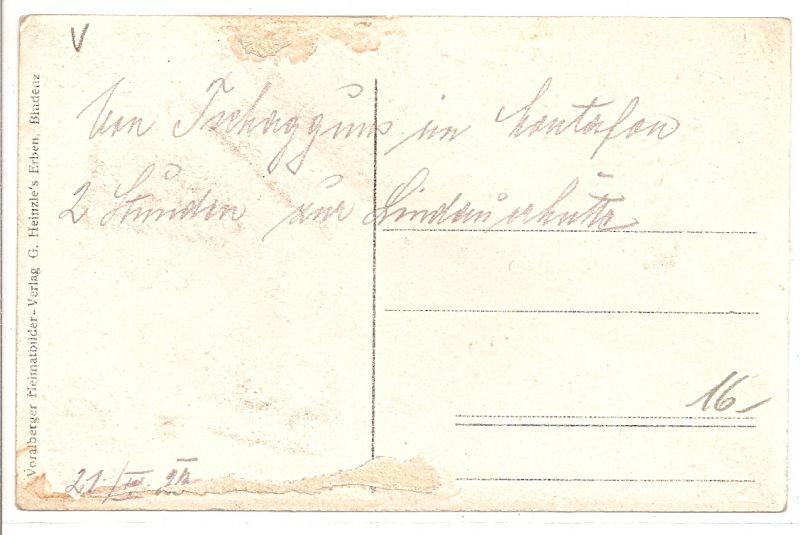 V
Von Tschagguns im Montafon
2 Stunden zur Lindauerhütte
16-
21.
Voralberger Heimatbilder-Verlag G. Heinzle's Erben, Bludenz